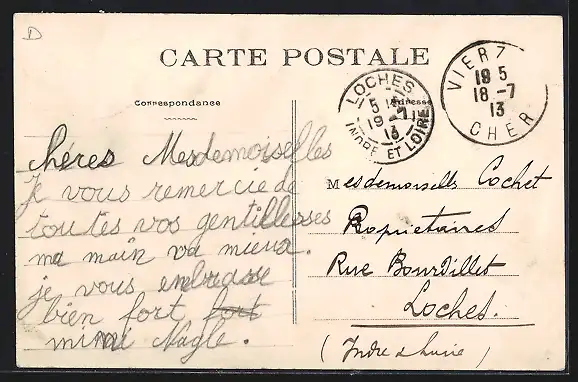 D
CARTE POSTALE
Correspondance
Adresse
LOCHES
5 15
19 -7
13
INDRE ET LOIRE
VIERZ
19 5
18 -7
13
CHER
Chéres Mesdemoiselles
Je vous remercie de
toutes vos gentillesses
ma main va mieux.
je vous embrasse
bien fort fort
mimi Nagle.
Mesdemoisells Cochet
Propriétaires
Rue Bourdillet
Loches.
(Indre & Loire)